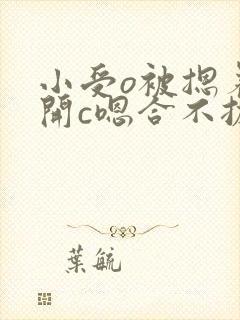 小受o被摁着
開c嗯合不拢
葉毓